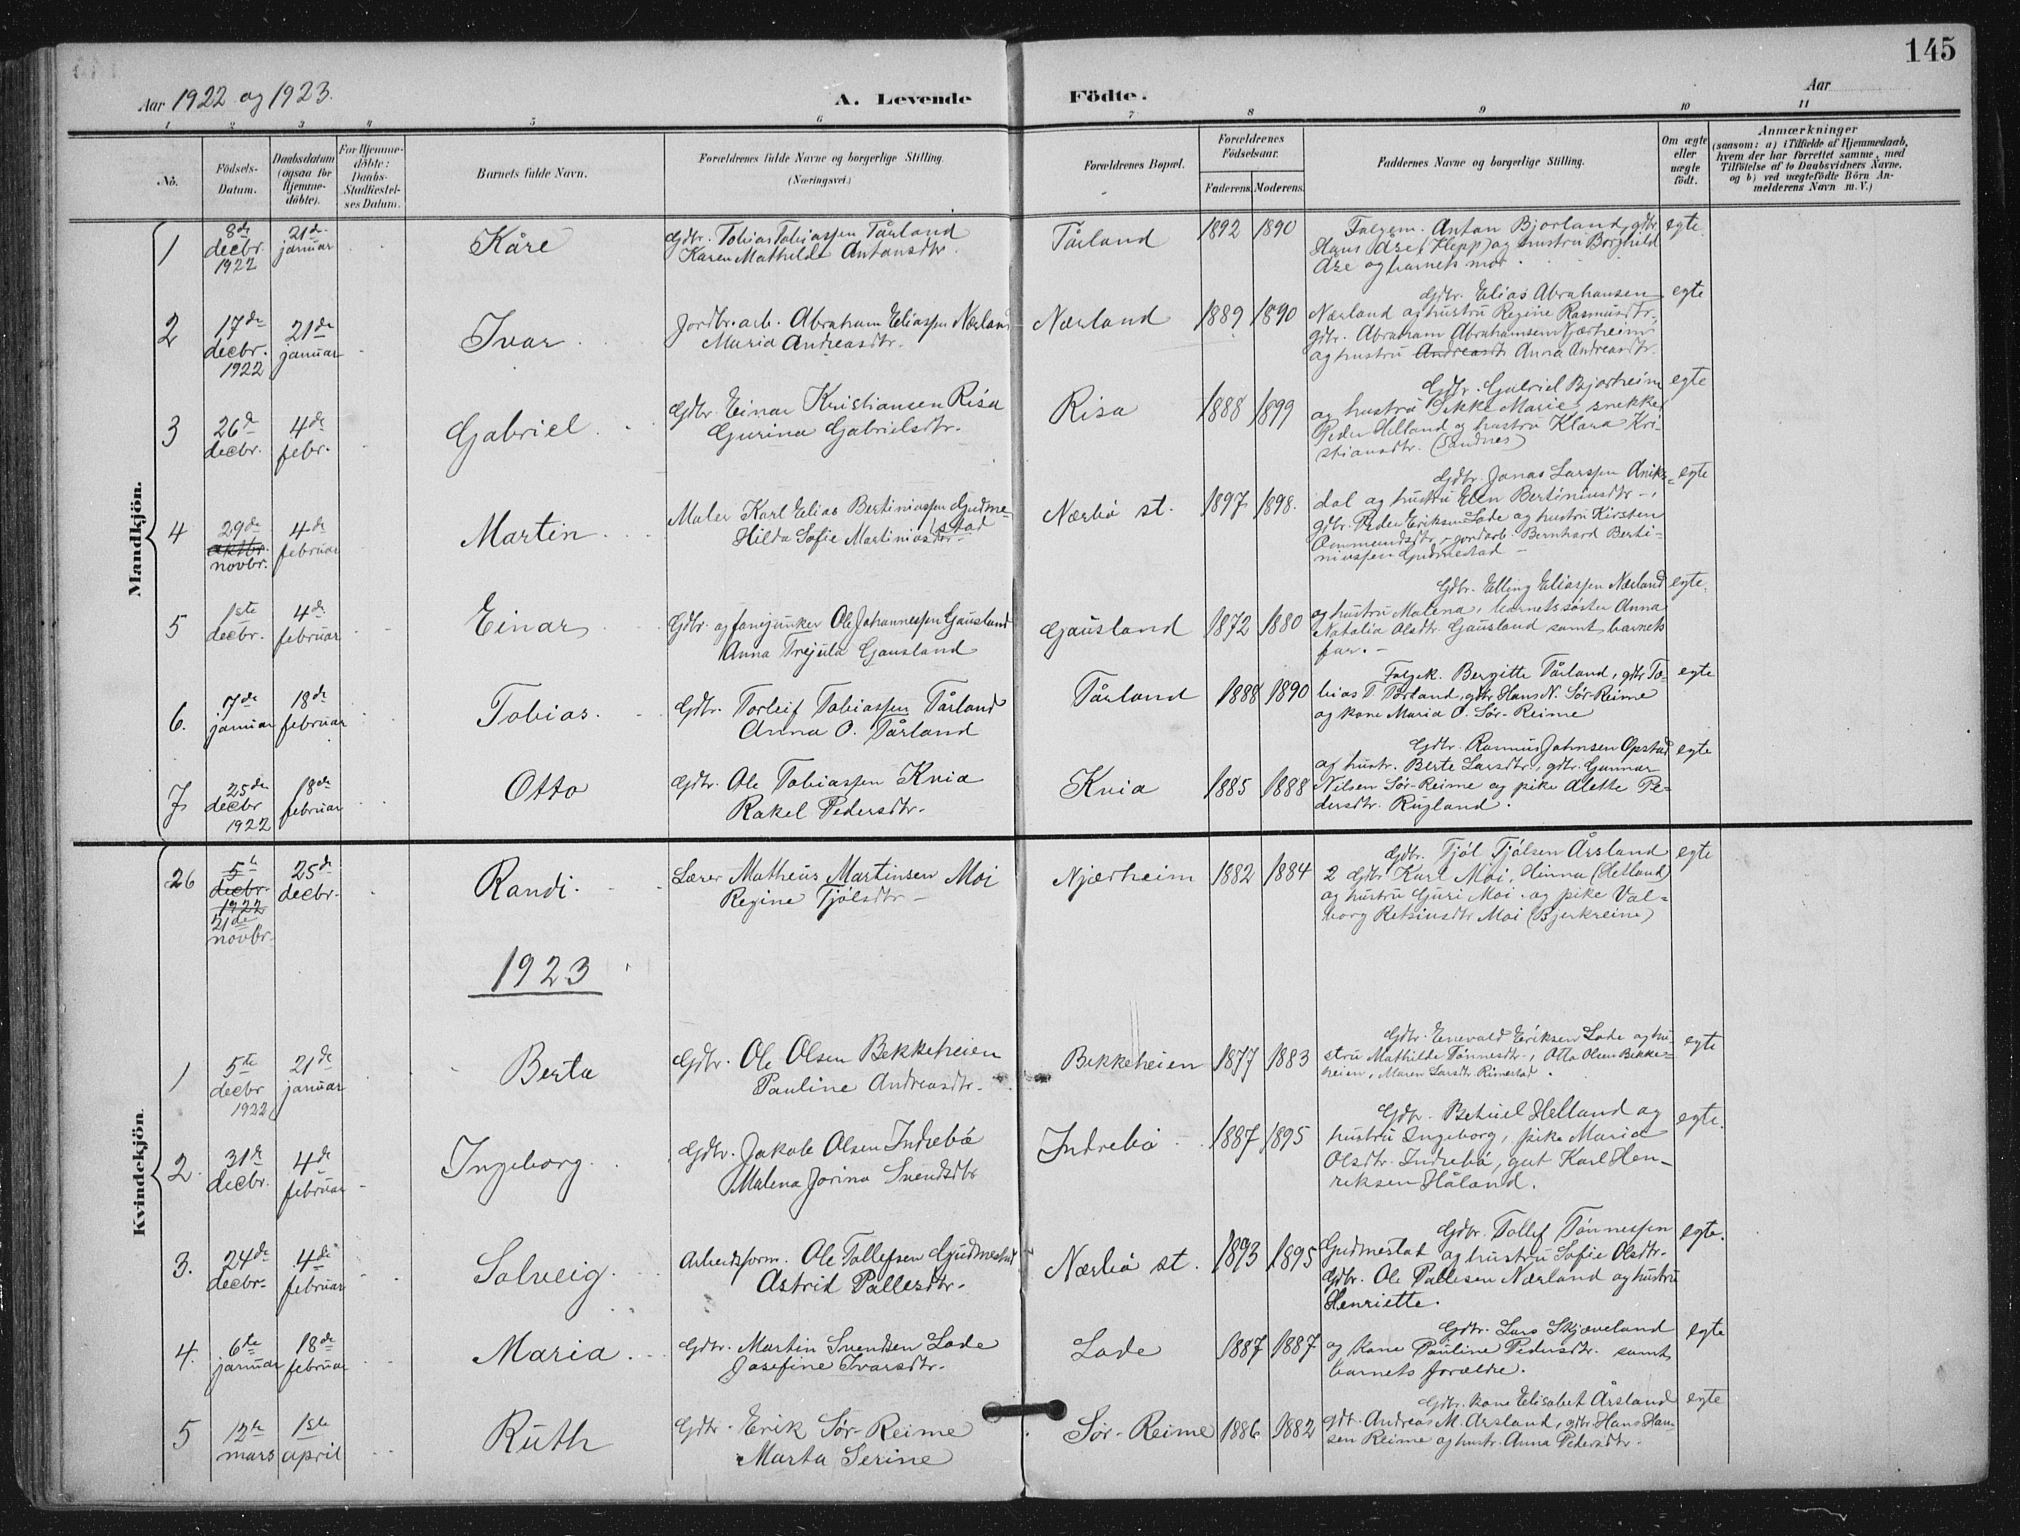 145
Aar 1922 og 1923.
A. Levende Födte.
Aar
1 2 3 4 5 6 7 8 9 10 11
No.
Födsels-
Datum.
Daabsdatum
(ogsaa for
Hjemme-
döbte).
For Hjemme-
döbte:
Daabs-
Stadfæstel-
ses Datum.
Barnets fulde Navn.
Forældrenes fulde Navne og borgerlige Stilling.
(Næringsvei.)
Forældrenes Bopæl.
Forældrenes
Födselsaar.
Faderens. Moderens.
Faddernes Navne og borgerlige Stilling.
Om ægte
eller
uægte
födt.
Anmærkninger
(saasom: a) i Tilfælde af Hjemmedaab,
hvem der har forrettet samme, med
Tilföielse af to Daabsvidners Navne,
og b) ved uægtefödte Börn An-
melderens Navn m. V.)
Mandkjön.
1
8de
decbr.
1922
21de
januar
Kåre
Gdbr. Tobias Tobiassen Tårland
Karen Mathilde Antonsdtr.
Tårland
1892 1890
Anton Bjorland, gdbr
Hans (Klepp) og hustru Borghild
og barnets mor.
egte.
2
17de
decbr.
1922
21de
januar
Ivar
Jordbr.arb. Abraham Eliassen Nærland
Maria Andreasdtr.
Nærland
1889 1890
Gdbr. Elias Abrahamsen
Nærland og hustru Regine Rasmusdtr.,
gdbr. Abraham Abrahamsen Njærheim
og hustru Andreasdt Anna Andreasdtr.
egte
3
26de
decbr.
4de
febr.
Gabriel
Gdbr. Einar Kristiansen Risa
Gurina Gabrielsdtr.
Risa
1888 1899
Gdbr. Gabriel Bjorheim
og hustru Marie, snekker
Peder Helland og hustru Klara Kri-
stiansdtr. (Sandnes)
egte
4
29de
oktbr.
novbr.
4de
februar
Martin
Maler Karl Elias Bertiniussen Gudme-
stad
Hilda Sofie Martiniusdtr.
Nærbø st.
1897 1898.
Gdbr. Jonas Larssen Aniks-
dal og hustru Elen Bertiniusdtr.,
gdbr. Peder Eriksen Lode og hustru Kirsten
Ommundsdtr., jordarb. Bernhard Berti-
niussen Gudmestad
egte
5
1ste
decbr.
4de
februar
Einar
Gdbr. og fanejunker Ole Johannessen Gausland
Anna Gausland
Gausland
1872 1880
Gdbr. Elling Eliassen Nærland
og hustru Malena, barnets søster Anna
Natalia Olsdtr. Gausland samt barnets
far.
egte.
6.
7de
januar
18de
februar
Tobias.
Gdbr. Torleif Tobiassen Tårland
Anna O. Tårland
Tårland
1888 1890
Bergitte Tårland, gdbr To-
bias T. Tårland, gdbr Hans N. Sør-Reime
og kone Maria O. Sør-Reime
egte
7.
25de
decbr
1922
18de
februar
Otto
Gdbr. Ole Tobiassen Kvia
Rakel Pedersdtr.
Kvia
1885 1888
Gdbr. Rasmus Johnsen Opstad
og hustr. Berte Larsdtr., gdbr. Gunnar
Nilsen Sør-Reime og pike Alette Pe-
dersdtr. Rugland.
egte
Kvindekjön.
26
5te
decbr.
1922
21de
novbr.
25de
decbr.
Randi.
Lærer Matheus Martinsen Moi
Regine Tjølsdtr
Njærheim
1882 1884
Gdbr. Tjøl Tjølsen Årsland
2 Gdbr Karl Moi, Hinna (Hetland)
og hustru Guri Moi og pike Val-
borg Moi (Bjerkreim)
egte
1923
1
5te
decbr
1922
21de
januar
Berta
Gdbr. Ole Olsen Bekkeheien
Pauline Andreasdtr.
Bekkeheien
1877 1883
Gdbr. Enevald Eriksen Lode og hu-
stru Mathilde Tønnesdtr., Otto Olsen Bekke-
heien, Maren Larsdtr. Rimestad.
egte
2.
31te
decbr.
4de
februar
Ingeborg.
Gdbr. Jakob Olsen Indrebø
Malena Jorina Svendsdtr
Indrebø
1887 1895
Gdbr. Betuel Helland og
hustru Ingeborg, pike Maria
Olsdtr. Indrebø, gut Karl Hen-
riksen Håland.
egte.
3.
24de
decbr.
4de
februar
Solveig.
Arbeidsform. Ole Tollefsen Gudmestad
Astrid Pallesdtr.
Nærbø st.
1893 1895
Gdbr. Tollef Tønnessen
Gudmestad og hustru Sofie Olsdtr.
Gdbr. Ole Pallesen Nærland og hustru
Henriette.
egte.
4.
6te
januar
18de
februar
Maria
Gdbr. Martin Svendsen Lode
Josefine Ivarsdtr.
Lode
1887 1887
Gdbr. Lars Skjæveland
og kone Pauline Pedersdtr. samt
barnets forældre.
egte
5
12te
mars
1ste
april
Ruth
Gdbr. Erik Sør-Reime
Marta Serine
Sør-Reime
1886 1882
Gdbr. kone Elisabet Årsland
gdbr. Andreas M. Årsland, gdbr. Hans Han-
sen Reime og hustr. Anna Pedersdtr.
egte